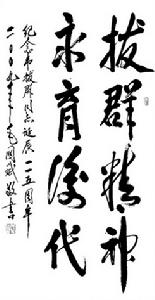 拔群精神
永育后代
纪念韦拔群同志诞辰一一五周年
二〇〇九年
敬书